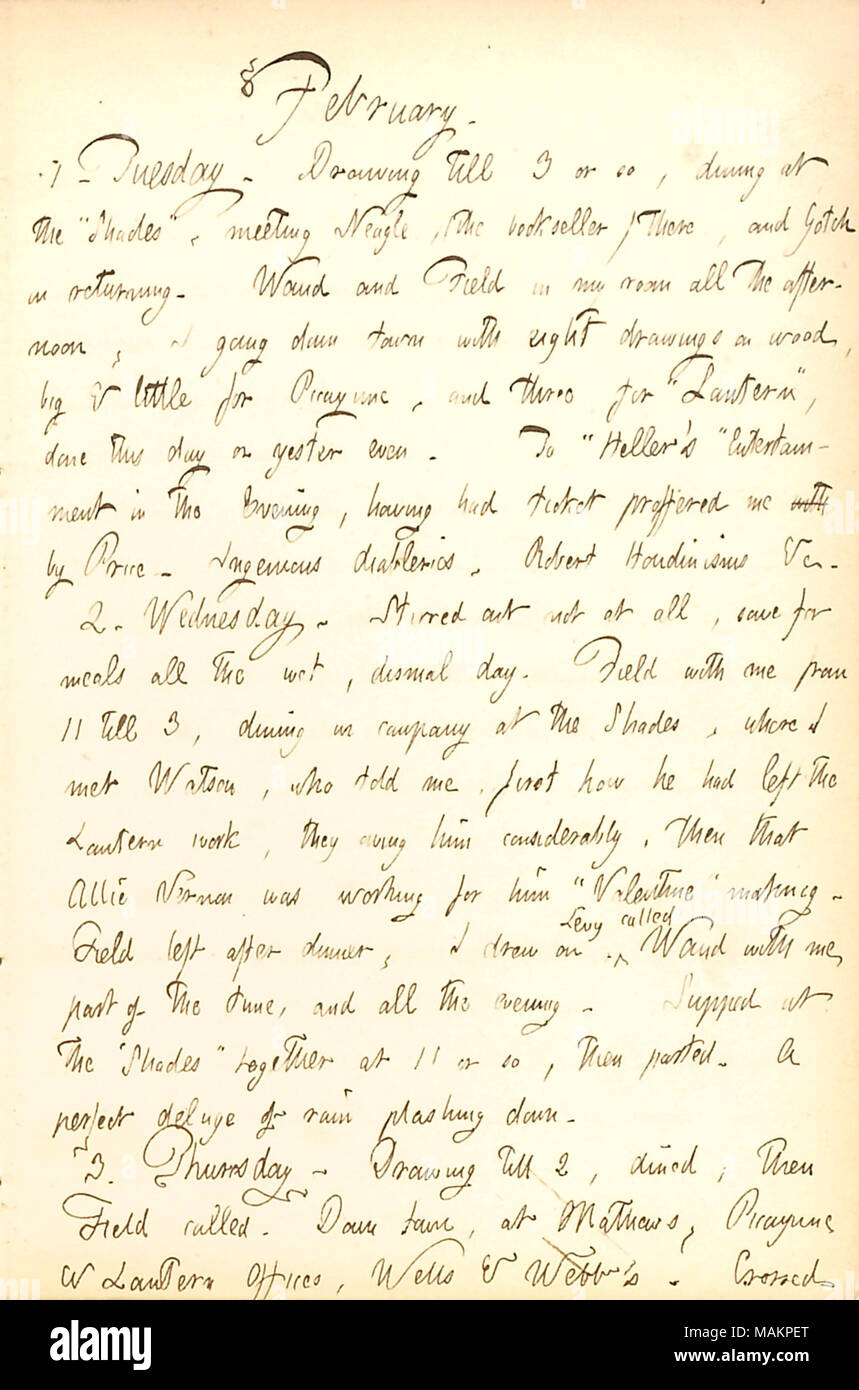 February.
1 - Tuesday. Drawing till 3 or so, dining at
the "Shades", meeting Neagle, (the bookseller) there, and Gotch
in returning. Waud and Field in my room all the after-
noon, I going down town with eight drawings on wood,
big & little for Picayune, and three for "Lantern",
done this day or yester even. To "Heller's" Entertain-
ment in the Evening, having had ticket proffered me with
by Price. Ingenious diableries, Robert Houdinisms &c.
2. Wednesday. Stirred out not at all, save for
meals all the wet, dismal day. Field with me from
11 till 3, dining in company at the Shades, where I
met Watson, who told me, first how he had left the
Lantern work, they owing him considerably, then that
Allie Vernon was working for him "Valentine" making.
Levy called
Field left after dinner, I drew on. Waud with me,
part of the time, and all the evening. Supped at
the "Shades" together at 11 or so, then parted. A
perfect deluge of rain plashing down.
3. Thursday - Drawing till 2, dined, then
Field called. Down town, at Mathews, Picayune
& Lantern Offices, Wells & Webb's. Crossed
alamy
Image ID: MAKPET
www.alamy.com